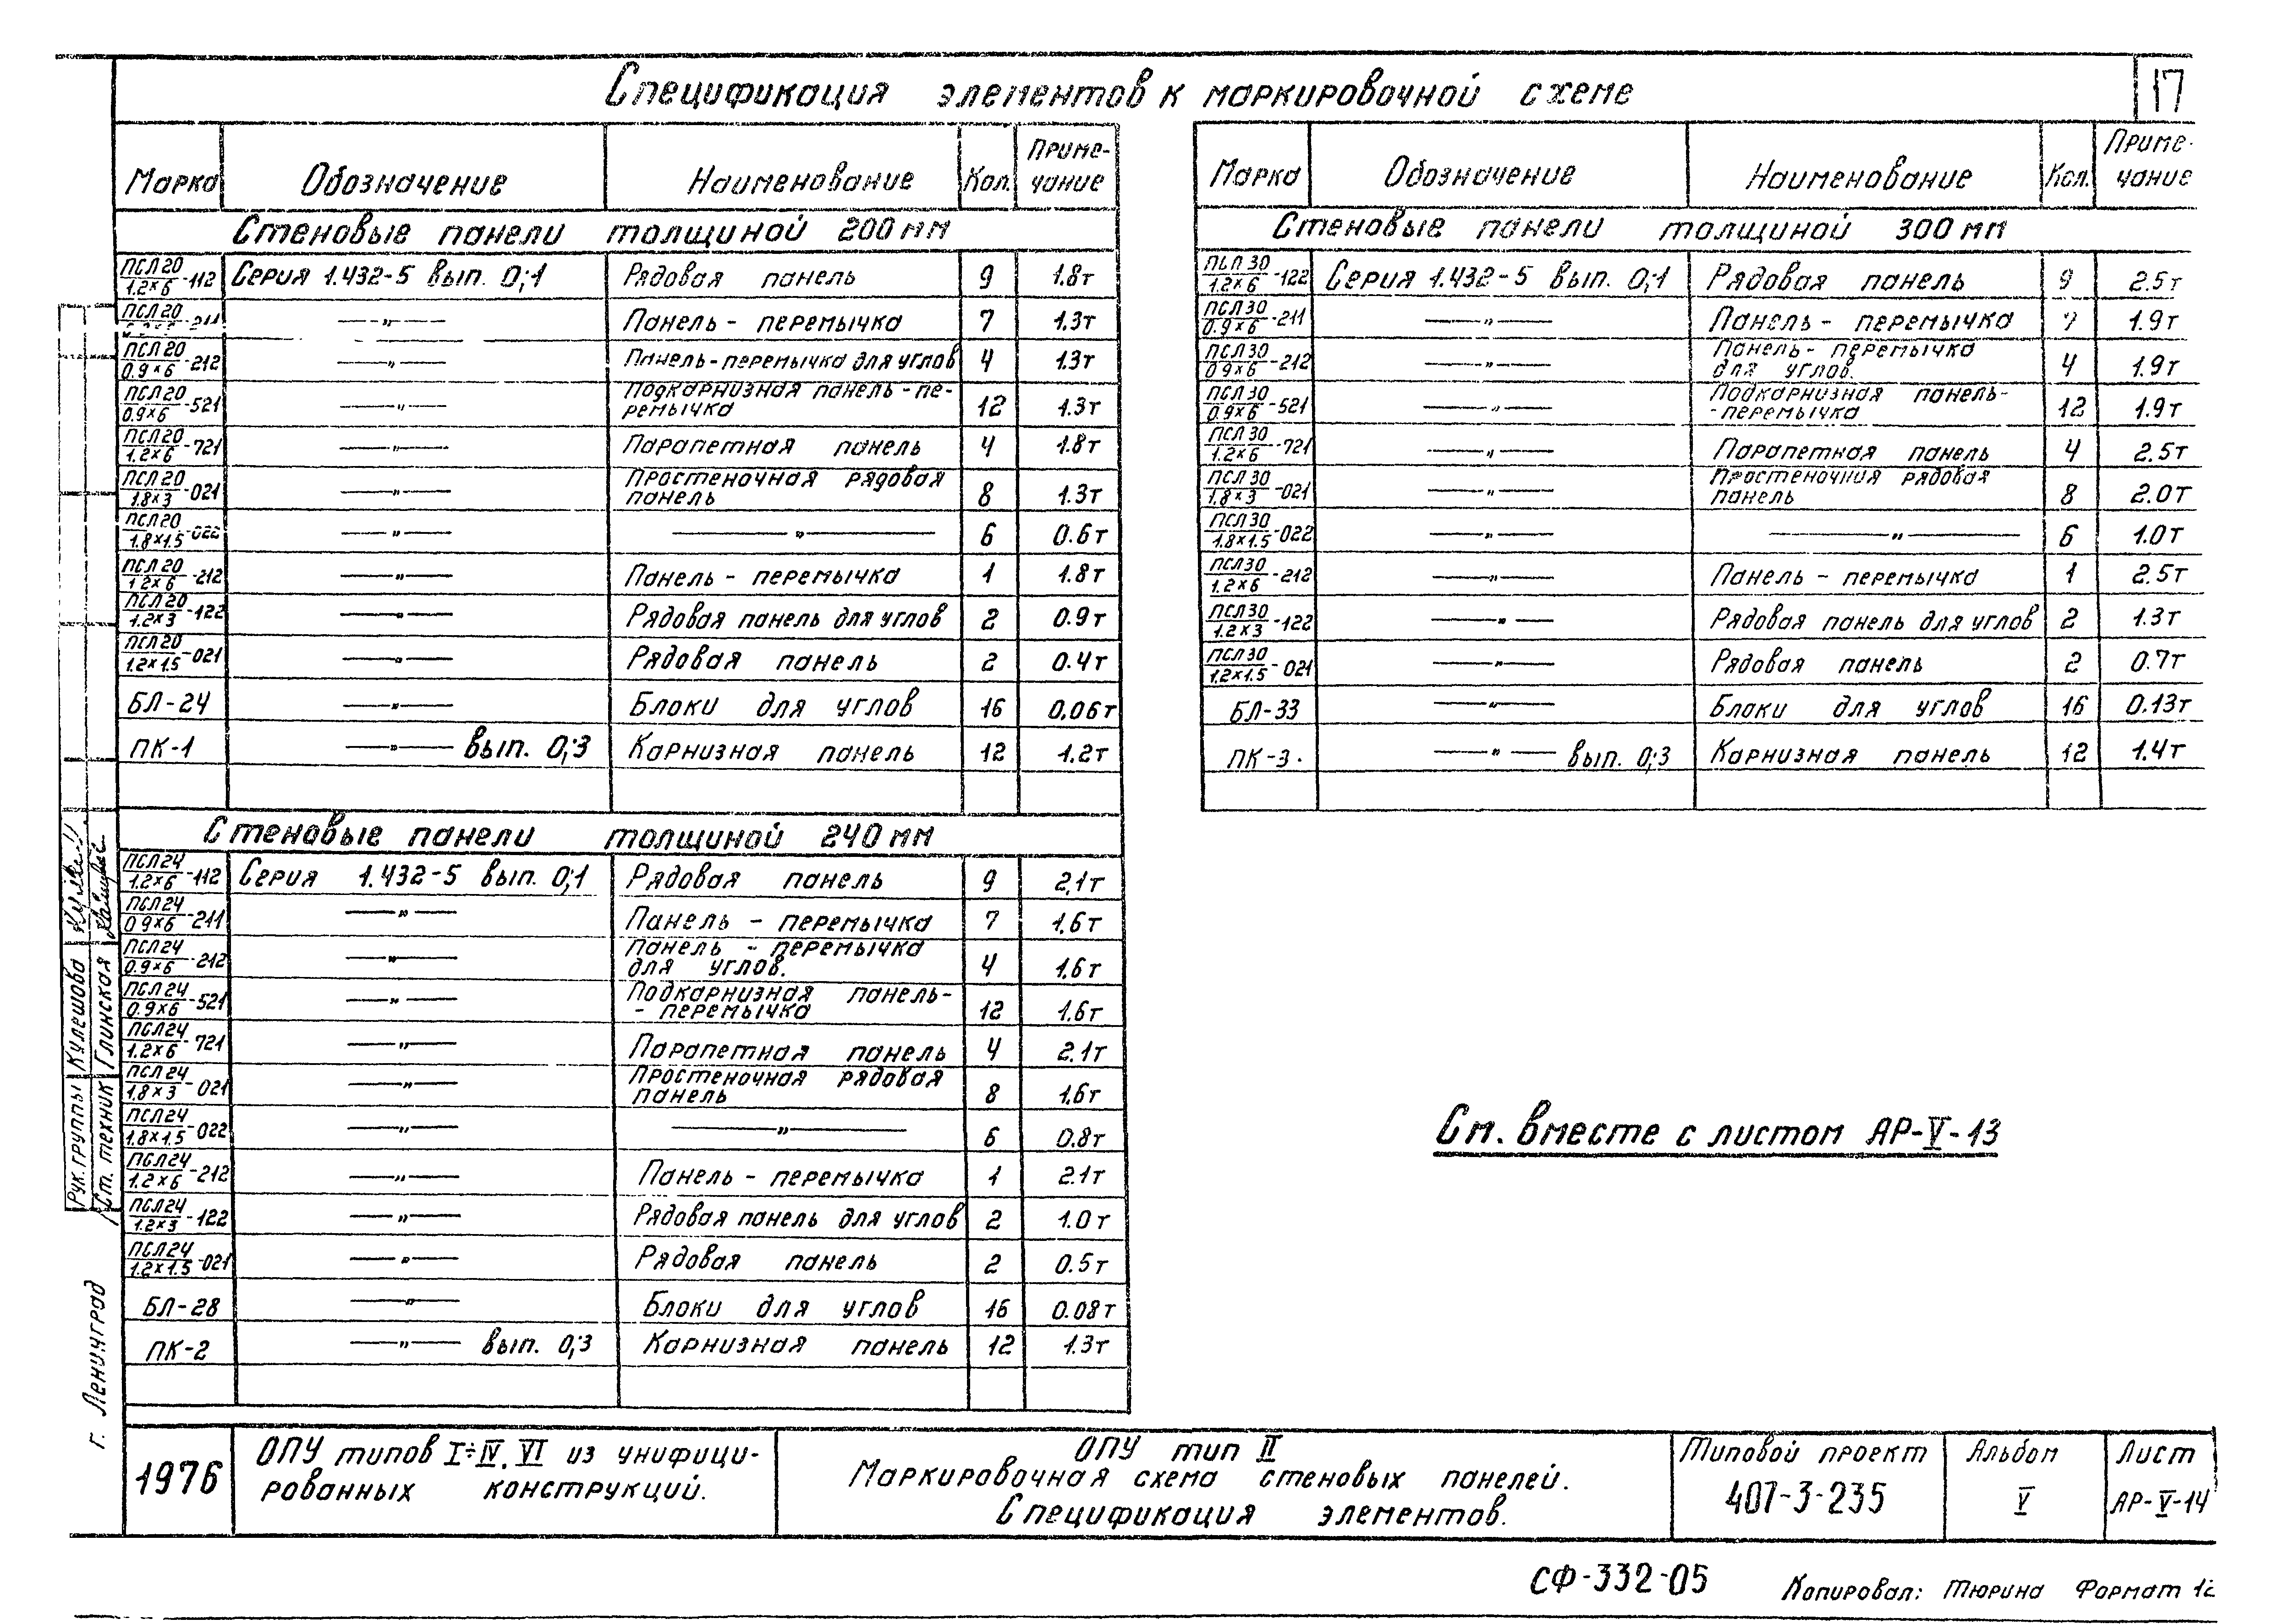 Спецификация элементов к маркировочной схеме
17
Марка Обозначение Наименование Кол. Приме-чание
Стеновые панели толщиной 200 мм
ПСЛ20/1.2×6-112 Серия 1.432-5 вып. 0;1 Рядовая панель 9 1.8т
ПСЛ20 -211 —„— Панель - перемычка 7 1.3т
ПСЛ20/0.9×6-212 —„— Панель-перемычка для углов 4 1.3т
ПСЛ20/0.9×6-521 —„— Подкарнизная панель-пе-ремычка 12 1.3т
ПСЛ20/1.2×6-721 —„— Парапетная панель 4 1.8т
ПСЛ20/1.8×3-021 —„— Простеночная рядовая панель 8 1.3т
ПСЛ20/1.8×1.5-022 —„— —„— 6 0.6т
ПСЛ20/1.2×6-212 —„— Панель - перемычка 1 1.8т
ПСЛ20/1.2×3-122 —„— Рядовая панель для углов 2 0.9т
ПСЛ20/1.2×1.5-021 —„— Рядовая панель 2 0.4т
БЛ-24 —„— Блоки для углов 16 0.06т
ПК-1 —„— вып. 0;3 Карнизная панель 12 1.2т
Стеновые панели толщиной 240 мм
ПСЛ24/1.2×6-112 Серия 1.432-5 вып. 0;1 Рядовая панель 9 2,1т
ПСЛ24/0.9×6-211 —„— Панель - перемычка 7 1.6т
ПСЛ24/0.9×6-212 —„— Панель - перемычка для углов. 4 1.6т
ПСЛ24/0.9×6-521 —„— Подкарнизная панель- - перемычка 12 1.6т
ПСЛ24/1.2×6-721 —„— Парапетная панель 4 2.1т
ПСЛ24/1.8×3-021 —„— Простеночная рядовая панель 8 1.6т
ПСЛ24/1.8×1.5-022 —„— —„— 6 0.8т
ПСЛ24/1.2×6-212 —„— Панель - перемычка 1 2.1т
ПСЛ24/1.2×3-122 —„— Рядовая панель для углов 2 1.0т
ПСЛ24/1.2×1.5-021 —„— Рядовая панель 2 0.5т
БЛ-28 —„— Блоки для углов 16 0.08т
ПК-2 —„— вып. 0;3 Карнизная панель 12 1.3т
Марка Обозначение Наименование Кол. Приме-чание
Стеновые панели толщиной 300 мм
ПСЛ30/1.2×6-122 Серия 1.432-5 вып. 0;1 Рядовая панель 9 2.5т
ПСЛ30/0.9×6-211 —„— Панель - перемычка 7 1.9т
ПСЛ30/0.9×6-212 —„— Панель - перемычка для углов. 4 1.9т
ПСЛ30/0.9×6-521 —„— Подкарнизная панель- -перемычка 12 1.9т
ПСЛ30/1.2×6-721 —„— Парапетная панель 4 2.5т
ПСЛ30/1.8×3-021 —„— Простеночния рядовая панель 8 2.0т
ПСЛ30/1.8×1.5-022 —„— —„— 6 1.0т
ПСЛ30/1.2×6-212 —„— Панель - перемычка 1 2.5т
ПСЛ30/1.2×3-122 —„— Рядовая панель для углов 2 1.3т
ПСЛ30/1.2×1.5-021 —„— Рядовая панель 2 0.7т
БЛ-33 —„— Блоки для углов 16 0.13т
ПК-3 —„— вып. 0;3 Карнизная панель 12 1.4т
См. вместе с листом АР-V-13
Рук. группы Кулешова
Ст. техник Глинская
г. Ленинград
1976
ОПУ типов I÷IV, VI из унифици-
рованных конструкций.
ОПУ тип II
Маркировочная схема стеновых панелей.
Спецификация элементов.
Типовой проект
407-3-235
Альбом
V
Лист
АР-V-14
СФ-332-05
Копировал: Тюрина Формат 12